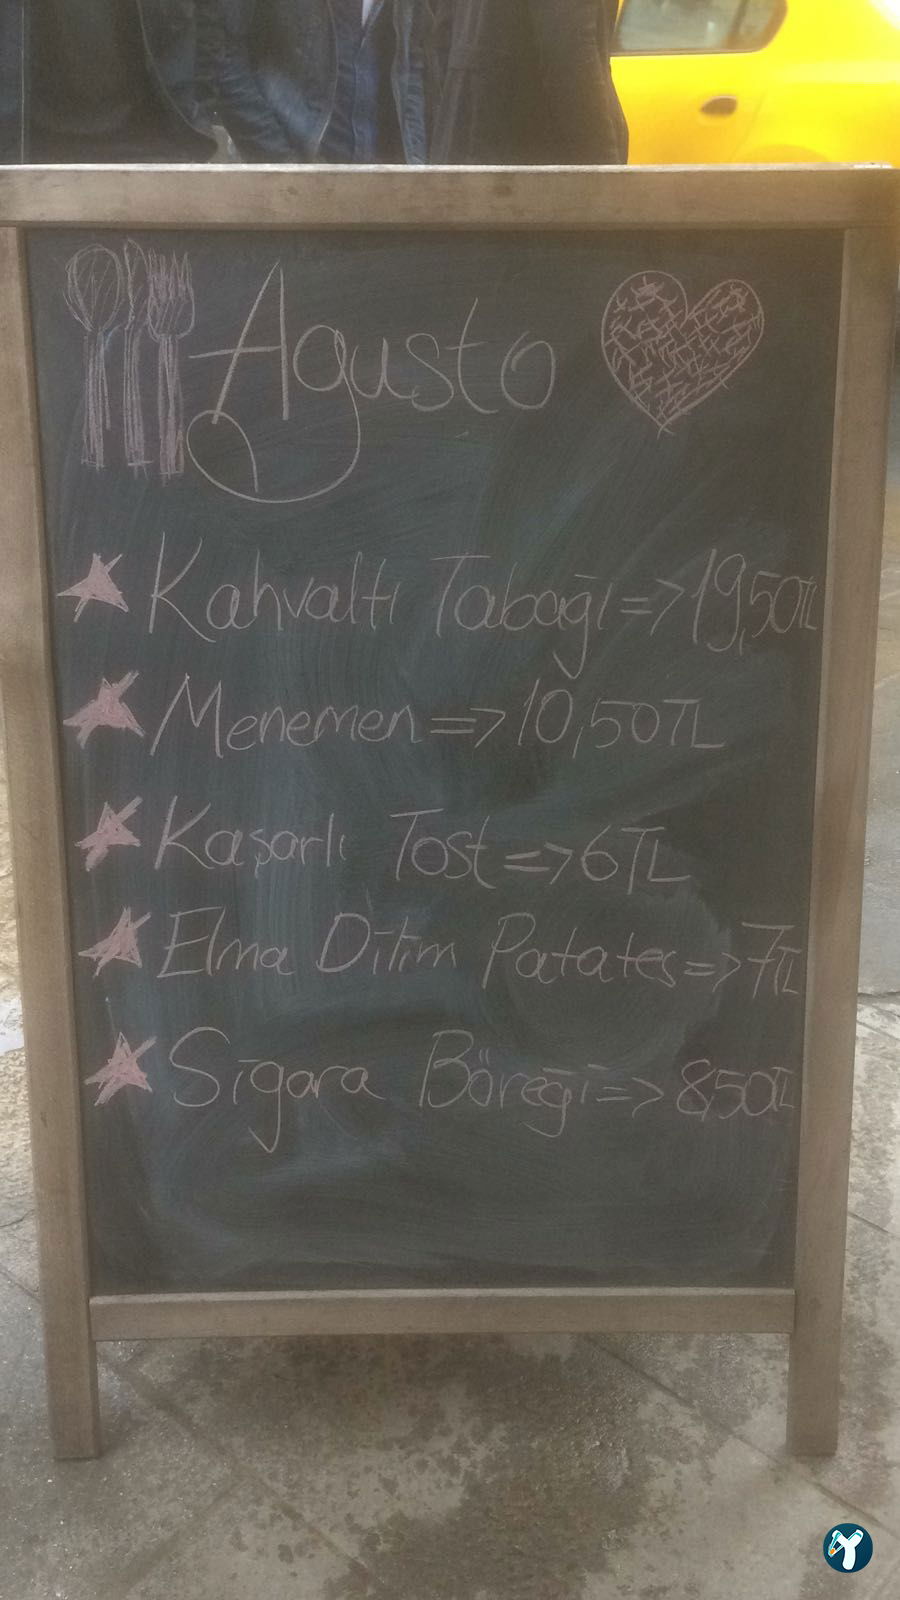 Agusto
Kahvaltı Tabağı => 19,50TL
Menemen => 10,50TL
Kaşarlı Tost => 6TL
Elma Dilim Patates => 7TL
Sigara Böreği => 8,50TL